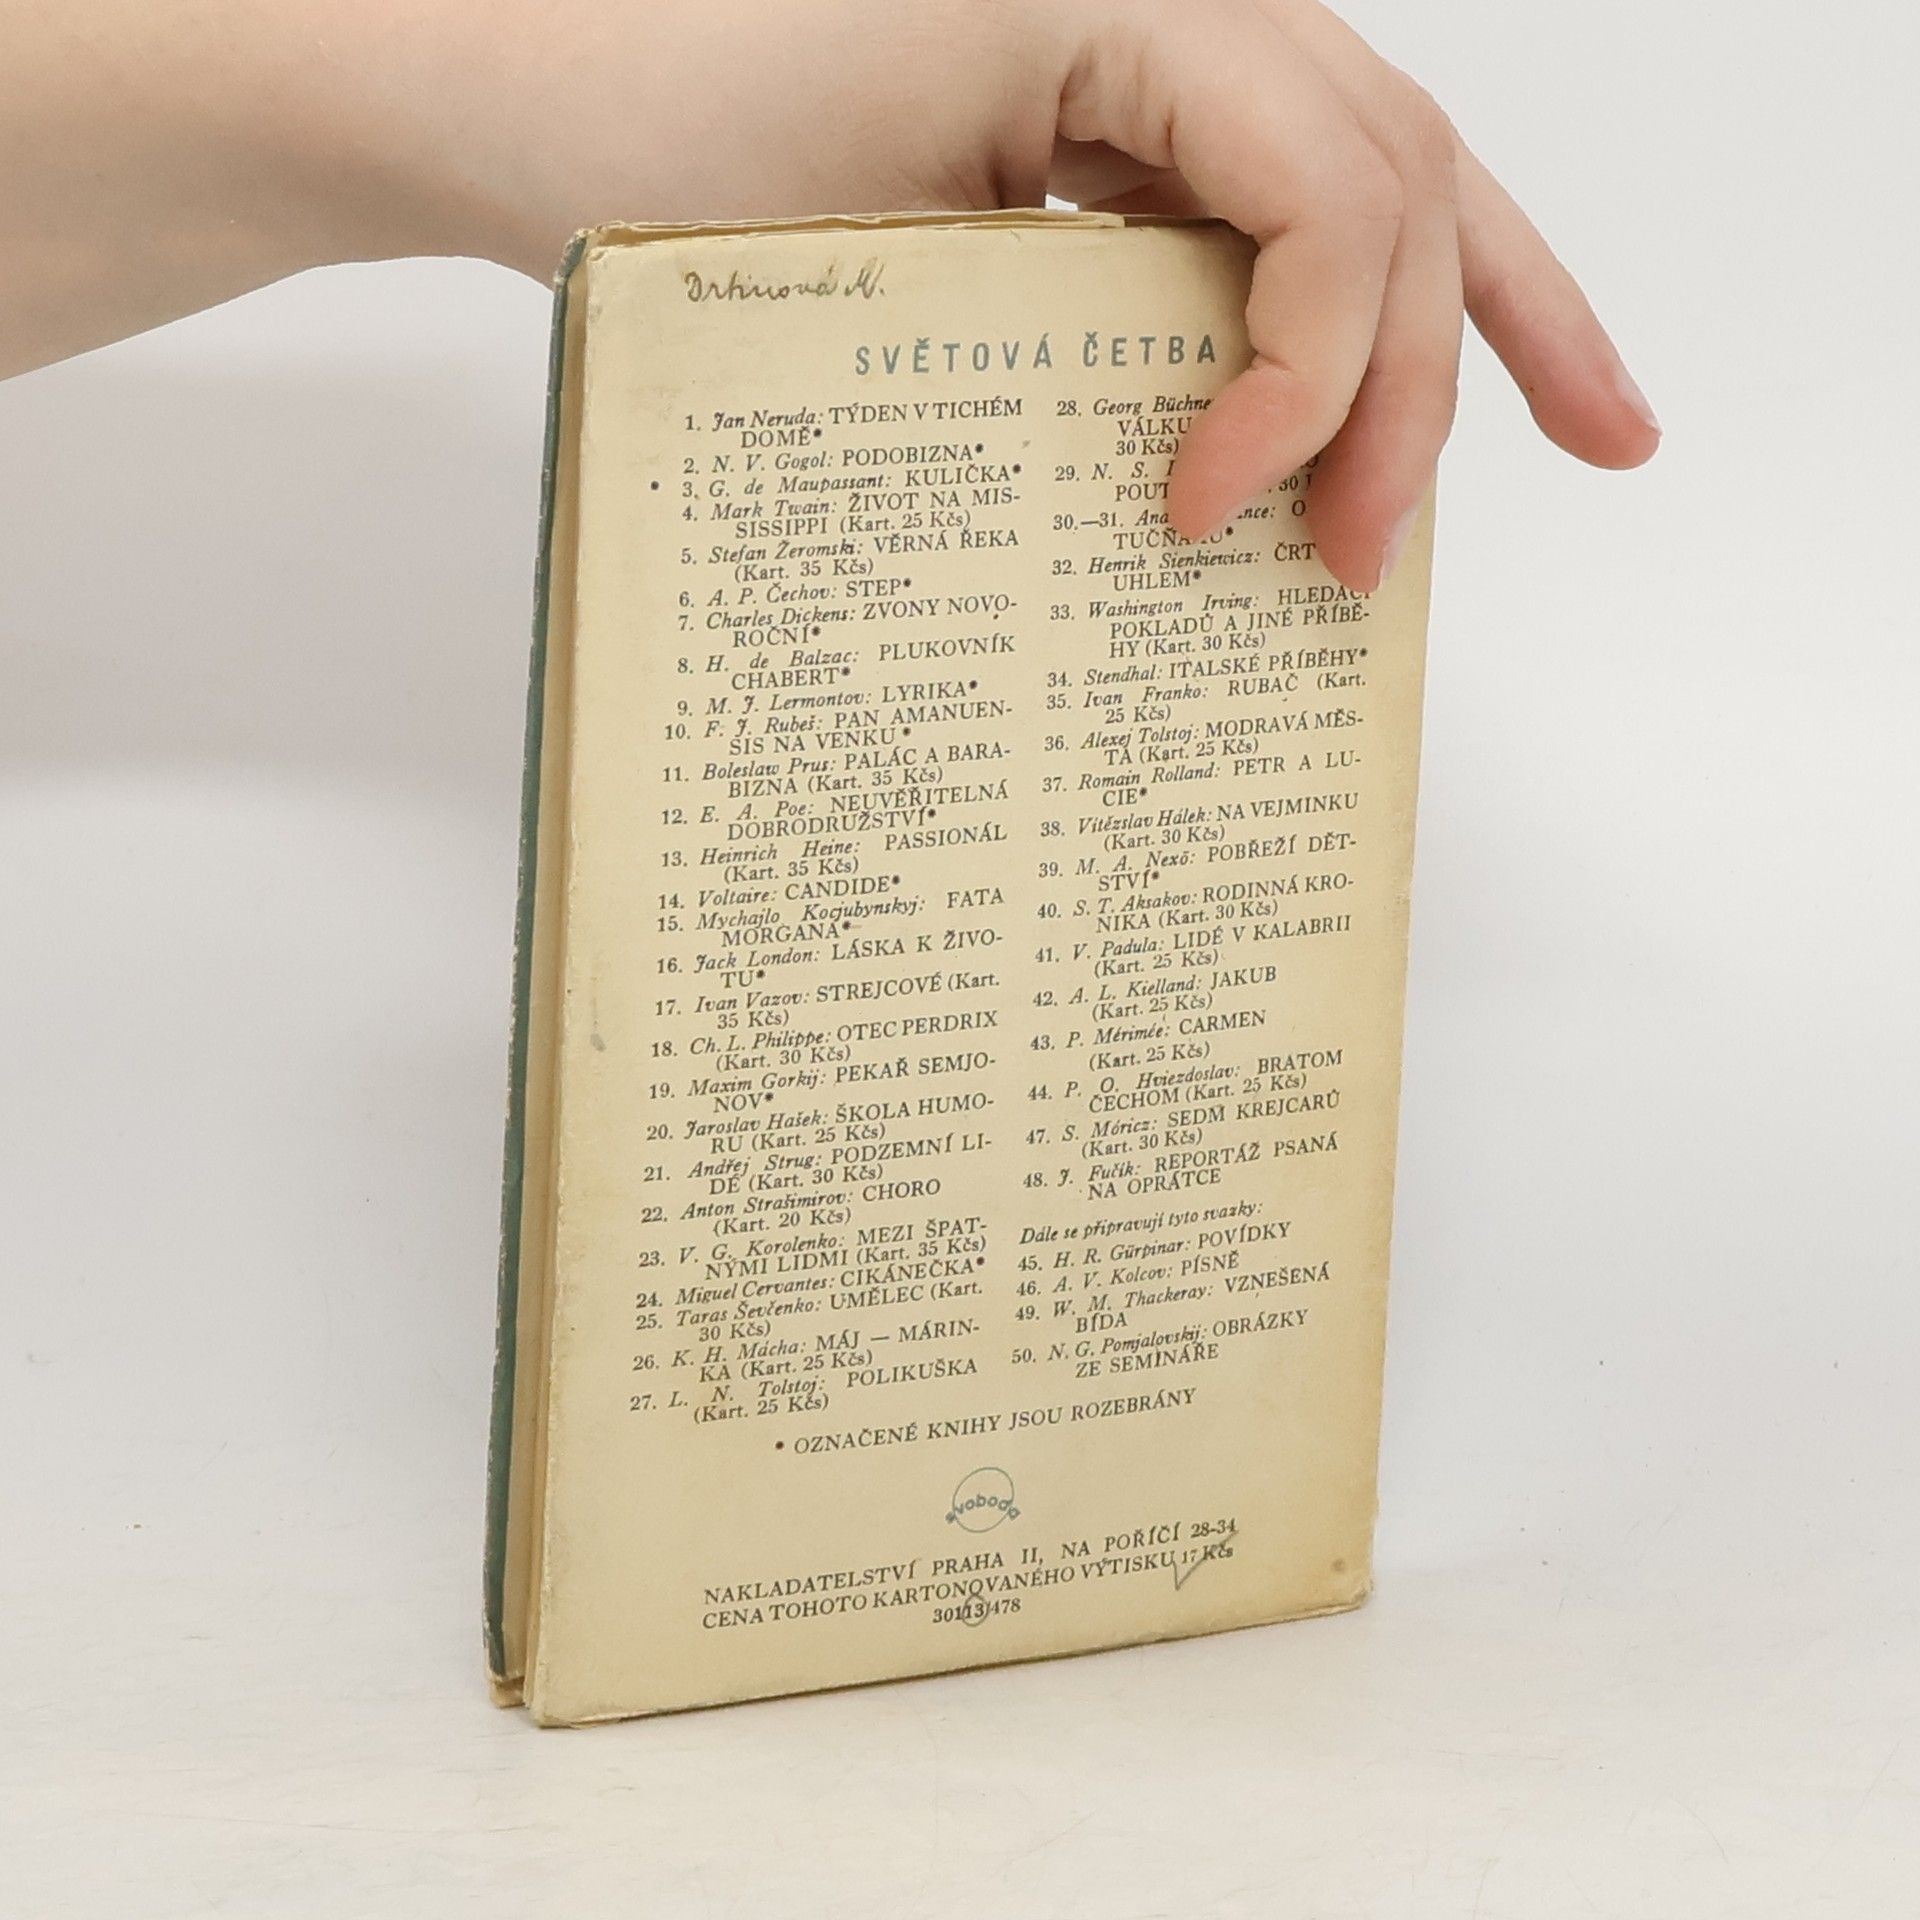 SVĚTOVÁ ČETBA
1. Jan Neruda: TÝDEN V TICHÉM
DOMĚ*
2. N. V. Gogol: PODOBIZNA*
• 3. G. de Maupassant: KULIČKA*
4. Mark Twain: ŽIVOT NA MIS-
SISSIPPI (Kart. 25 Kčs)
5. Stefan Žeromski: VĚRNÁ ŘEKA
(Kart. 35 Kčs)
6. A. P. Čechov: STEP*
7. Charles Dickens: ZVONY NOVO-
ROČNÍ*
8. H. de Balzac: PLUKOVNÍK
CHABERT*
9. M. J. Lermontov: LYRIKA*
10. F. J. Rubeš: PAN AMANUEN-
SIS NA VENKU*
11. Boleslaw Prus: PALÁC A BARA-
BIZNA (Kart. 35 Kčs)
12. E. A. Poe: NEUVĚŘITELNÁ
DOBRODRUŽSTVÍ*
13. Heinrich Heine: PASSIONÁL
(Kart. 35 Kčs)
14. Voltaire: CANDIDE*
15. Mychajlo Kocjubynskyj: FATA
MORGANA*
16. Jack London: LÁSKA K ŽIVO-
TU*
17. Ivan Vazov: STREJCOVÉ (Kart.
35 Kčs)
18. Ch. L. Philippe: OTEC PERDRIX
(Kart. 30 Kčs)
19. Maxim Gorkij: PEKAŘ SEMJO-
NOV*
20. Jaroslav Hašek: ŠKOLA HUMO-
RU (Kart. 25 Kčs)
21. Andřej Strug: PODZEMNÍ LI-
DÉ (Kart. 30 Kčs)
22. Anton Strašimirov: CHORO
(Kart. 20 Kčs)
23. V. G. Korolenko: MEZI ŠPAT-
NÝMI LIDMI (Kart. 35 Kčs)
24. Miguel Cervantes: CIKÁNEČKA*
25. Taras Ševčenko: UMĚLEC (Kart.
30 Kčs)
26. K. H. Mácha: MÁJ — MÁRIN-
KA (Kart. 25 Kčs)
27. L. N. Tolstoj: POLIKUŠKA
(Kart. 25 Kčs)
28. Georg Büchne
VÁLKU
30 Kčs)
29. N. S.
POUT 30
30.—31. Ana nce: O
TUČŇA
32. Henrik Sienkiewicz: ČRT
UHLEM*
33. Washington Irving: HLEDAČI
POKLADŮ A JINÉ PŘÍBĚ-
HY (Kart. 30 Kčs)
34. Stendhal: ITALSKÉ PŘÍBĚHY*
35. Ivan Franko: RUBAČ (Kart.
25 Kčs)
36. Alexej Tolstoj: MODRAVÁ MĚS-
TA (Kart. 25 Kčs)
37. Romain Rolland: PETR A LU-
CIE*
38. Vítězslav Hálek: NA VEJMINKU
(Kart. 30 Kčs)
39. M. A. Nexö: POBŘEŽÍ DĚT-
STVÍ*
40. S. T. Aksakov: RODINNÁ KRO-
NIKA (Kart. 30 Kčs)
41. V. Padula: LIDÉ V KALABRII
(Kart. 25 Kčs)
42. A. L. Kielland: JAKUB
(Kart. 25 Kčs)
43. P. Mérimée: CARMEN
(Kart. 25 Kčs)
44. P. O. Hviezdoslav: BRATOM
ČECHOM (Kart. 25 Kčs)
47. S. Móricz: SEDM KREJCARŮ
(Kart. 30 Kčs)
48. J. Fučík: REPORTÁŽ PSANÁ
NA OPRÁTCE
Dále se připravují tyto svazky:
45. H. R. Gürpinar: POVÍDKY
46. A. V. Kolcov: PÍSNĚ
49. W. M. Thackeray: VZNEŠENÁ
BÍDA
50. N. G. Pomjalovskij: OBRÁZKY
ZE SEMINÁŘE
* OZNAČENÉ KNIHY JSOU ROZEBRÁNY
svoboda
NAKLADATELSTVÍ PRAHA II, NA POŘÍČÍ 28-34
CENA TOHOTO KARTONOVANÉHO VÝTISKU 17 Kčs
30113/478